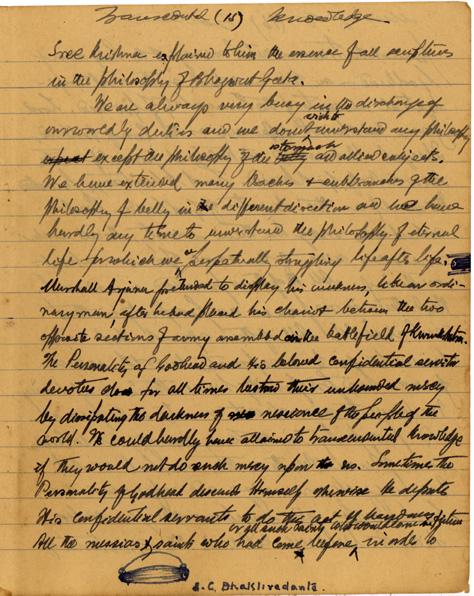 Transcendental (15) Knowledge
Sree Krishna explained to him the essence of all scriptures
in the philosophy of Bhagwat Geeta.
We are always very busy in the discharge of
our worldly duties and we do not wish to understand any philosophy
except the philosophy of the stomach and allied subjects.
We have extended many branches & subbranches of the
philosophy of belly in different direction and we have
hardly any time to understand the philosophy of eternal
life for which we are perpetually struggling life after life.
Marshall Arjuna pretended to display his weakness, like an ordi-
nary man, after he had placed his chariot between the two
opposite sections of army assembled in the battlefield of Kurukshetra.
The Personality of Godhead and His beloved confidential servitor
devotees do for all times bestow their unbounded mercy
by dissipating the darkness of nescience of the people of the
world. We could hardly have attained to transcendental knowledge
if they would not do such mercy upon us. Sometimes the
Personality of Godhead descends Himself otherwise He deputes
His confidential servants to do the act of kindness
or and such saints who would come in future
All the messias & saints who had come before, in order to
A.C. Bhaktivedanta.